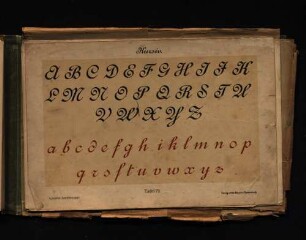 Kursiv.
A B C D E F G H I J K
L M N O P Q R S T U
V W X Y Z
a b c d e f g h i k l m n o p
q r s f t u v w x y z.